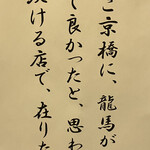 こ京橋に、龍馬が
て良かったと、思わ
ける店で、在りた